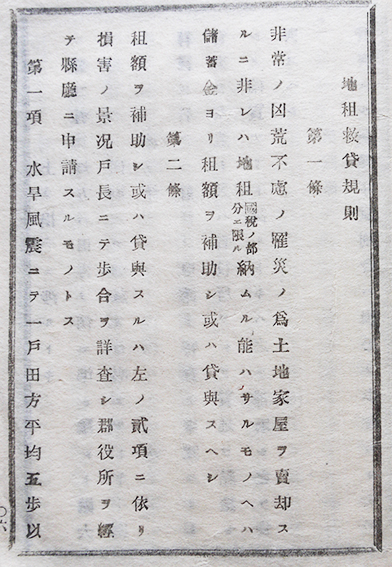 地租救貸規則
第一條
非常ノ凶荒不慮ノ罹災ノ爲土地家屋ヲ賣却ス
ルニ非レハ地租國稅ノ部分ニ限ル納ムル能ハサルモノヘハ
儲蓄金ヨリ租額ヲ補助シ或ハ貸與スヘシ
第二條
租額ヲ補助シ或ハ貸與スルハ左ノ貳項ニ依リ
損害ノ景況戸長ニテ歩合ヲ詳査シ郡役所ヲ經
テ縣廳ニ申請スルモノトス
第一項 水旱風震ニテ一戸田方平均五歩以
〇六